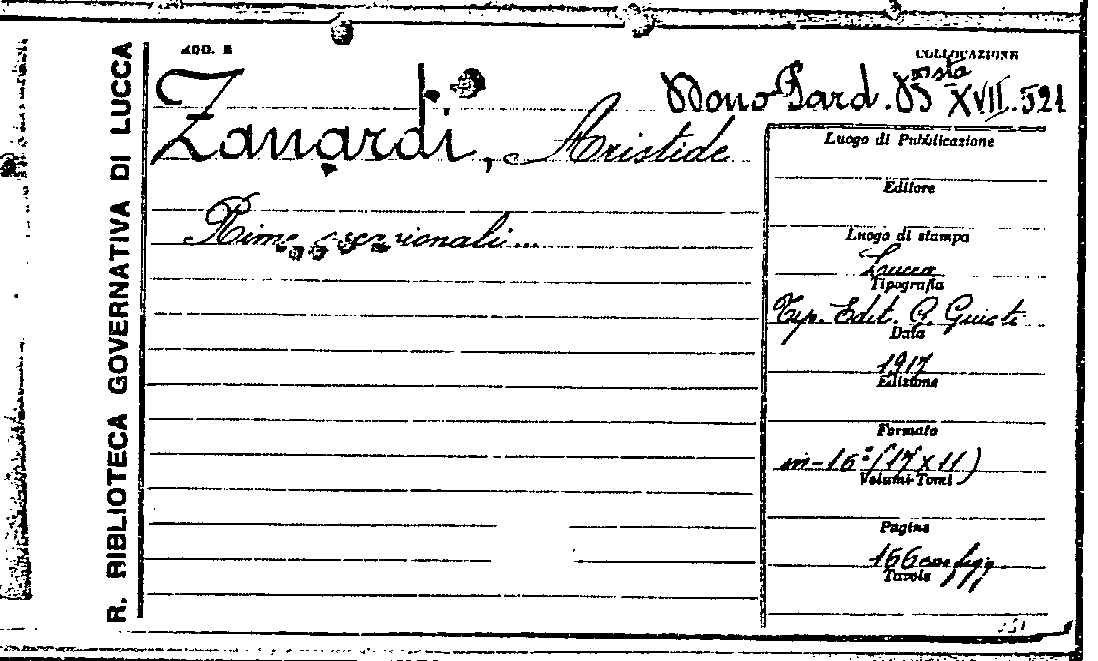 R. BIBLIOTECA GOVERNATIVA DI LUCCA
MOD. B
COLLOCAZIONE
Dono Pard. Busta XVII. 521
Zanardi, Aristide
Rime eccezionali...
Luogo di Pubblicazione
Editore
Luogo di stampa
Lucca
Tipografia
Tip. Edit. G. Giusti
Data
1917
Edizione
Formato
in-16° (17 x 11)
Volumi-Tomi
Pagine
166 con figg.
Tavole